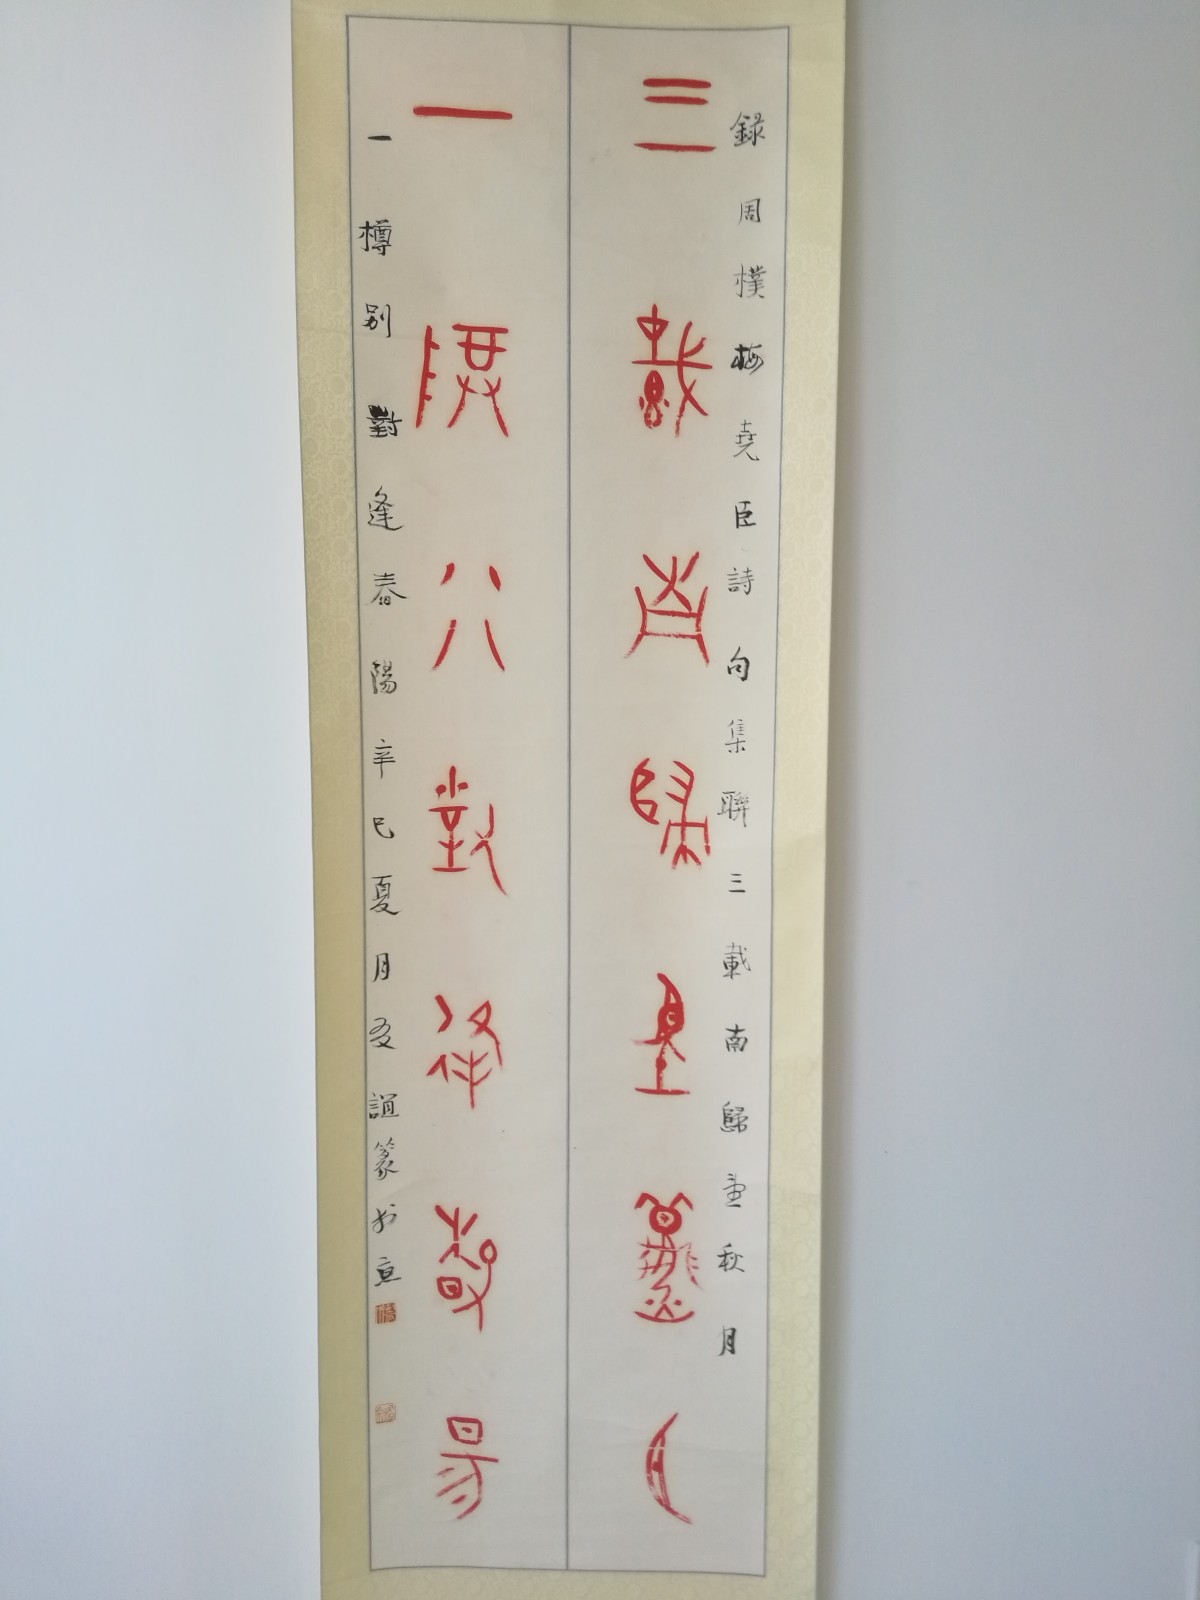 錄周樸梅堯臣詩句集聯三載南歸望秋月
三載南歸望秋月
一樽別對逢春陽
一樽別對逢春陽辛巳夏月友誼篆於京